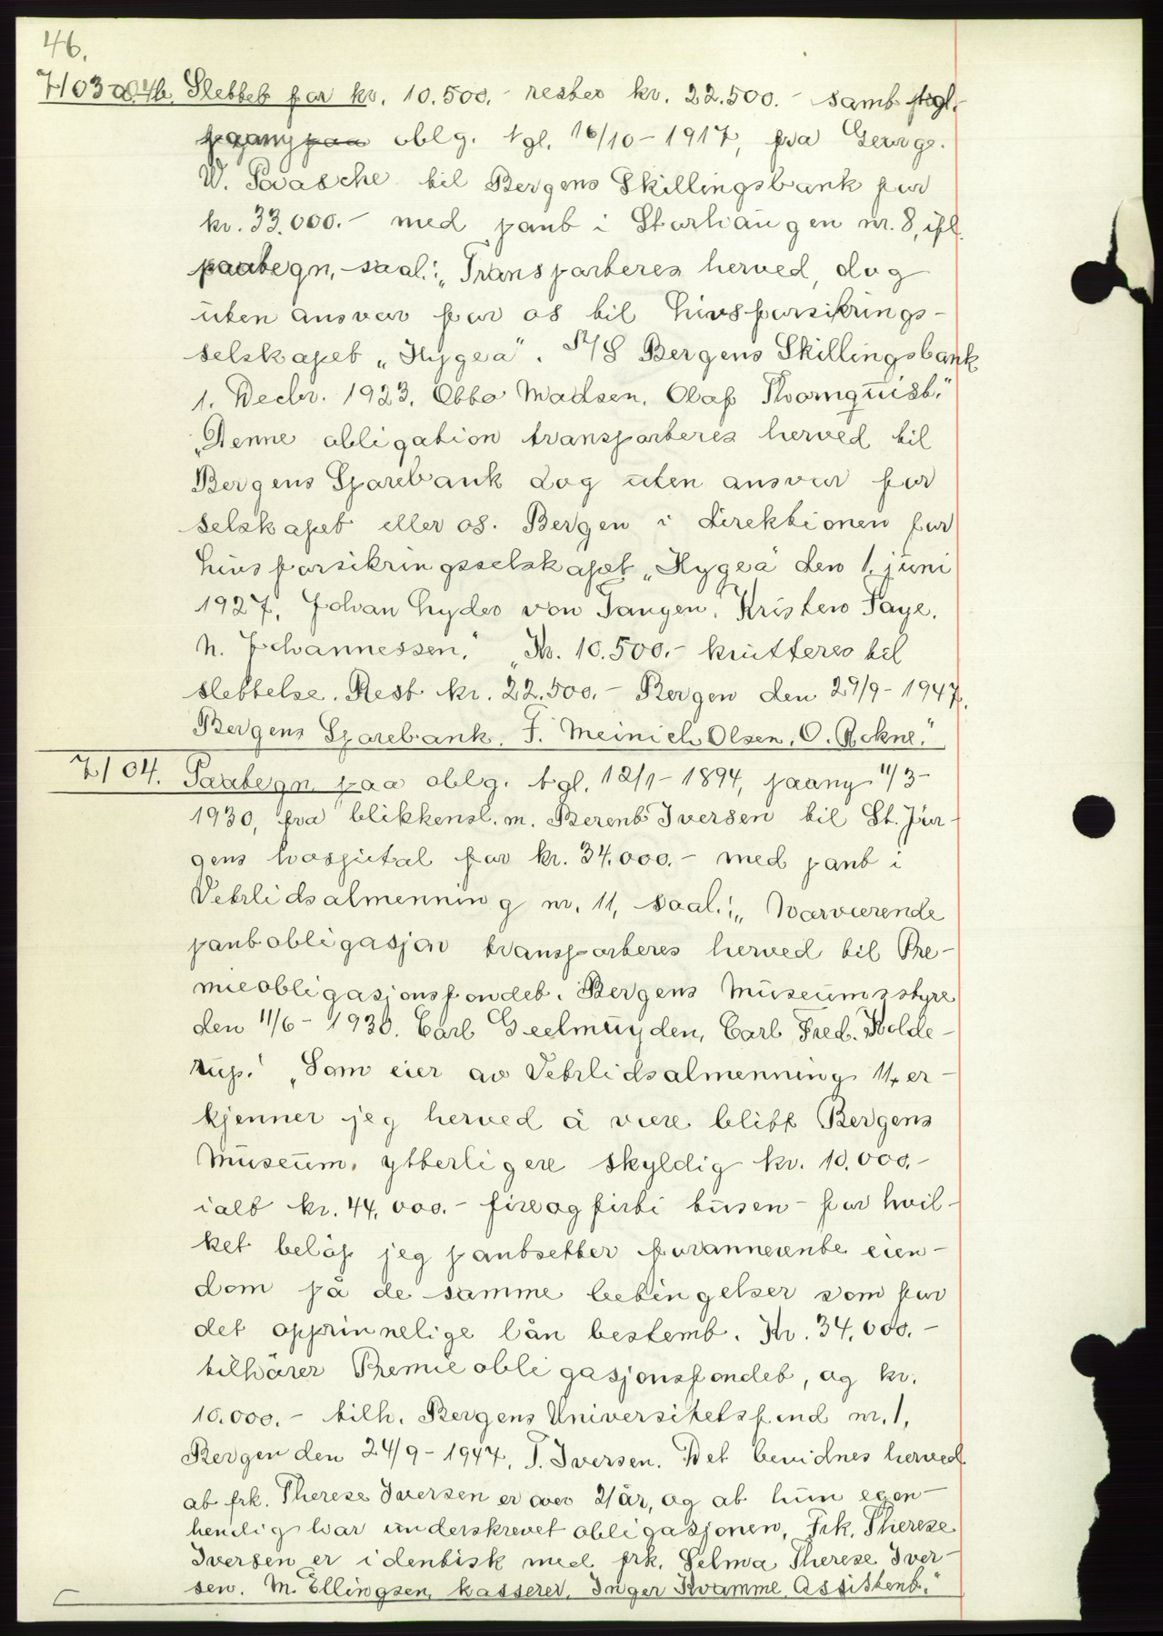 46.
7103 Slettet for kr. 10.500.- rester kr. 22.500.- samt
oblg. tgl. 16/10-1917, fra George.
W. Paasche til Bergens Skillingsbank for
kr. 33.000.- med pant i Storhaugen nr. 8, ifl.
paategn, saal.: „Transporteres herved, dog
uten ansvar for os til Livsforsikrings-
selskapet „Hygea“. A/S Bergens Skillingsbank
1. Decbr. 1923. Ebbo Madsen. Olaf Thornquist.“
„Denne obligation transporteres herved til
Bergens Sparebank dog uten ansvar for
selskapet eller os. Bergen i direktionen for
Livsforsikringsselskapet „Hygea“ den 1. juni
1927. Johan Lyder von Tangen. Kristen Faye.
N. Johannessen.“ „Kr. 10.500.- kvitteres til
slettelse. Rest kr. 22.500.- Bergen den 29/9-1947.
Bergens Sparebank. F. Meinich Olsen. O.
7104. Paategn paa oblg. tgl. 12/1-1894, paany 11/3-
1930, fra blikkensl.m. Berent Iversen til St. Jür-
gens hospital for kr. 34.000.- med pant i
Vetrlidsalmenning nr. 11, saal.: „Nærværende
pantobligasjon transporteres herved til Pre-
mieobligasjonsfondet. Bergens Museumsstyre
den 11/6-1930. Carl Geelmuyden, Carl Fred. Kolde-
rup.“ „Som eier av Vetrlidsalmenning 11, er-
kjenner jeg herved å være blitt Bergens
Museum, ytterligere skyldig kr. 10.000.-
ialt kr. 44.000.- fireogfirti tusen - for hvil-
ket beløp jeg pantsetter forannevnte eien-
dom på de samme betingelser som for
det opprinnelige lån bestemt. Kr. 34.000.-
tilhører Premieobligasjonsfondet, og kr.
10.000.- tilh. Bergens Universitetsfond nr. 1.
Bergen den 24/9-1947. T. Iversen. Det bevidnes herved
at frk. Therese Iversen er over 21 år, og at hun egen-
hendig har underskrevet obligasjonen. Frk. Therese
Iversen er identisk med frk. Selma Therese Iver-
sen. M. Ellingsen, kasserer. Inger Kvamme Assistent.“